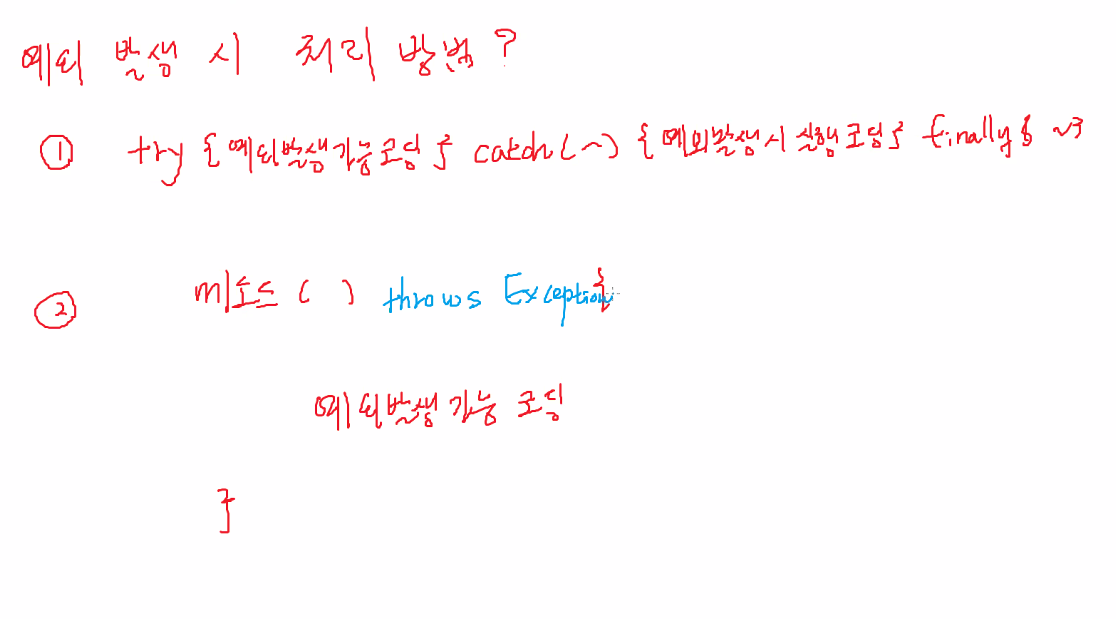 예외 발생 시 처리 방법?
① try { 예외발생가능코딩 } catch(~) { 예외발생시 실행코딩 } finally { ~}
② 메소드 ( ) throws Exception{
예외발생가능 코딩
}